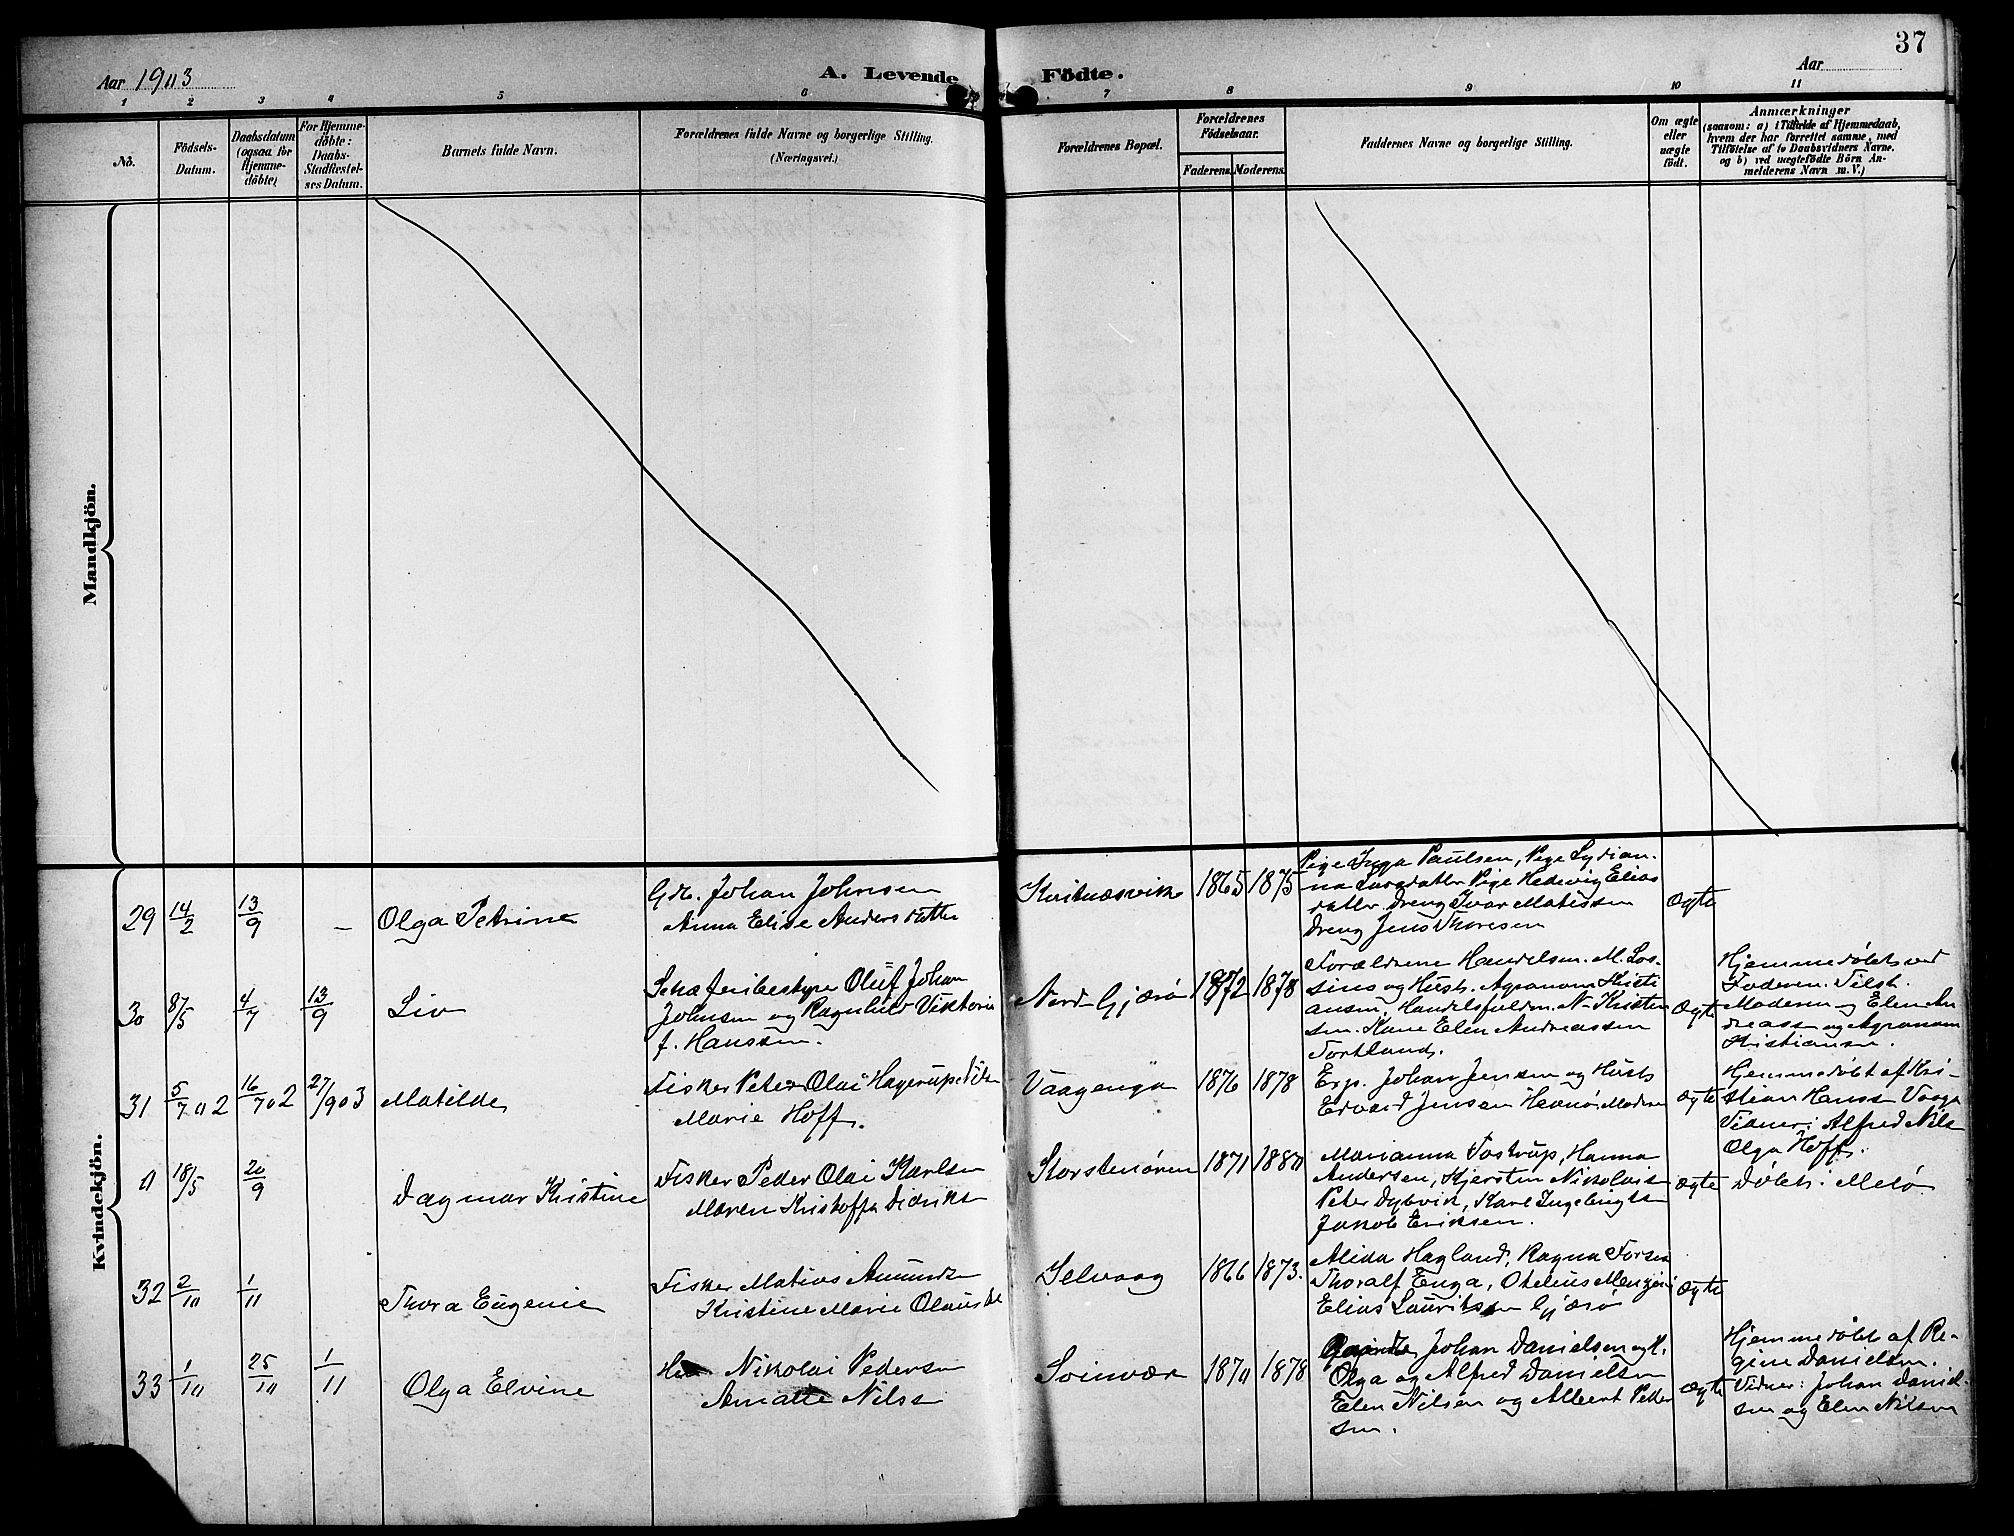 37
Aar 1903
A. Levende Födte.
Aar
1 2 3 4 5 6 7 8 9 10 11
No.
Födsels-
Datum.
Daabsdatum
(ogsaa for
Hjemme-
døbte)
For Hjemme-
døbte:
Daabs-
Stadfæstel-
ses Datum.
Barnets fulde Navn.
Forældrenes fulde Navne og borgerlige Stilling.
(Næringsvei.)
Forældrenes Bopæl.
Forældrenes
Födselsaar.
Faderens. Moderens.
Faddernes Navne og borgerlige Stilling.
Om ægte
eller
uægte
födt.
Anmærkninger
(saasom: a) i Tilfælde af Hjemmedaab,
hvem der har forrettet samme, med
Tilföielse af to Daabsvidners Navne.
og b) ved uægtefödte Börn An-
melderens Navn m. V.)
Mandkjön.
Kvindekjön.
29 14/2 13/9 – Olga Petrine
Gdb. Johan Johnsen
Anna Elise Andersdatter
Kvitnæsvik 1865 1875
Pige Inga Paulsen, Pige Lydian-
na Larsdatter Pige Hedevig Elias
datter. Dreng Ivar Matissen
Dreng Jens Thoresen
ægte
30 8/5 4/7 13/9 Liv
Oluf Johan
Johnsen og Ragnhild Viktoria
f. Hanssen.
Nord-Gjærø 1872 1878
Forældrene Handelsm. M. Los-
sius og Hust. Agronom Kristi
ansen, Handelsfuldm. N. Kristen
sen. Kone Elen Andreassen
Tortland.
ægte
Hjemmedøbt ved
Faderen. Tilst.
Moderen og Elen An
dreass og Agronom
Kristiansen.
31 5/7 02 16/7 02 27/9 03 Matilde
Fisker Peter Olai Hagerup
Marie Hoff.
Vaagenga 1876 1878
Exp. Johan Jensen og Hust
Edvard Jensen Moderen
ægte
Hjemmedøbt af Kri-
stian Hanss Vaaga
Vidner: Alfred Nils
Olga Hoff.
0 18/5 20/9 Dagmar Kristine
Fisker Peder Olai Karlsen
Maren Kristoffa Didrikt
Storstenören 1871 1880
Marianna Tostrup, Hanna
Andersen, Kjersten Nikolais
Peter Dybvik, Karl Ingebrigts
Jakob Eriksen.
ægte
Döbt. Melö
32 2/10 1/11 Thora Eugenie
Fisker Matias Amunds
Kristine Marie Olausdt
Selvaag 1866 1873.
Alida Hagland, Ragna Torsen
Thoralf Enga, Otelius
Elias Lauritsen Gjærø
ægte
33 1/10 25/10 1/11 Olga Elvine
Nikolai Pedersen
Amatte Nilss
Svinvær 1870 1878
Johan Danielsen og h.
Olga og Alfred Danielsen
Elen Nilsen og Albert Peder
sen.
ægte
Hjemmedöbt af Re-
gine Danielsen.
Vidner: Johan Daniel-
sen og Elen Nilsen